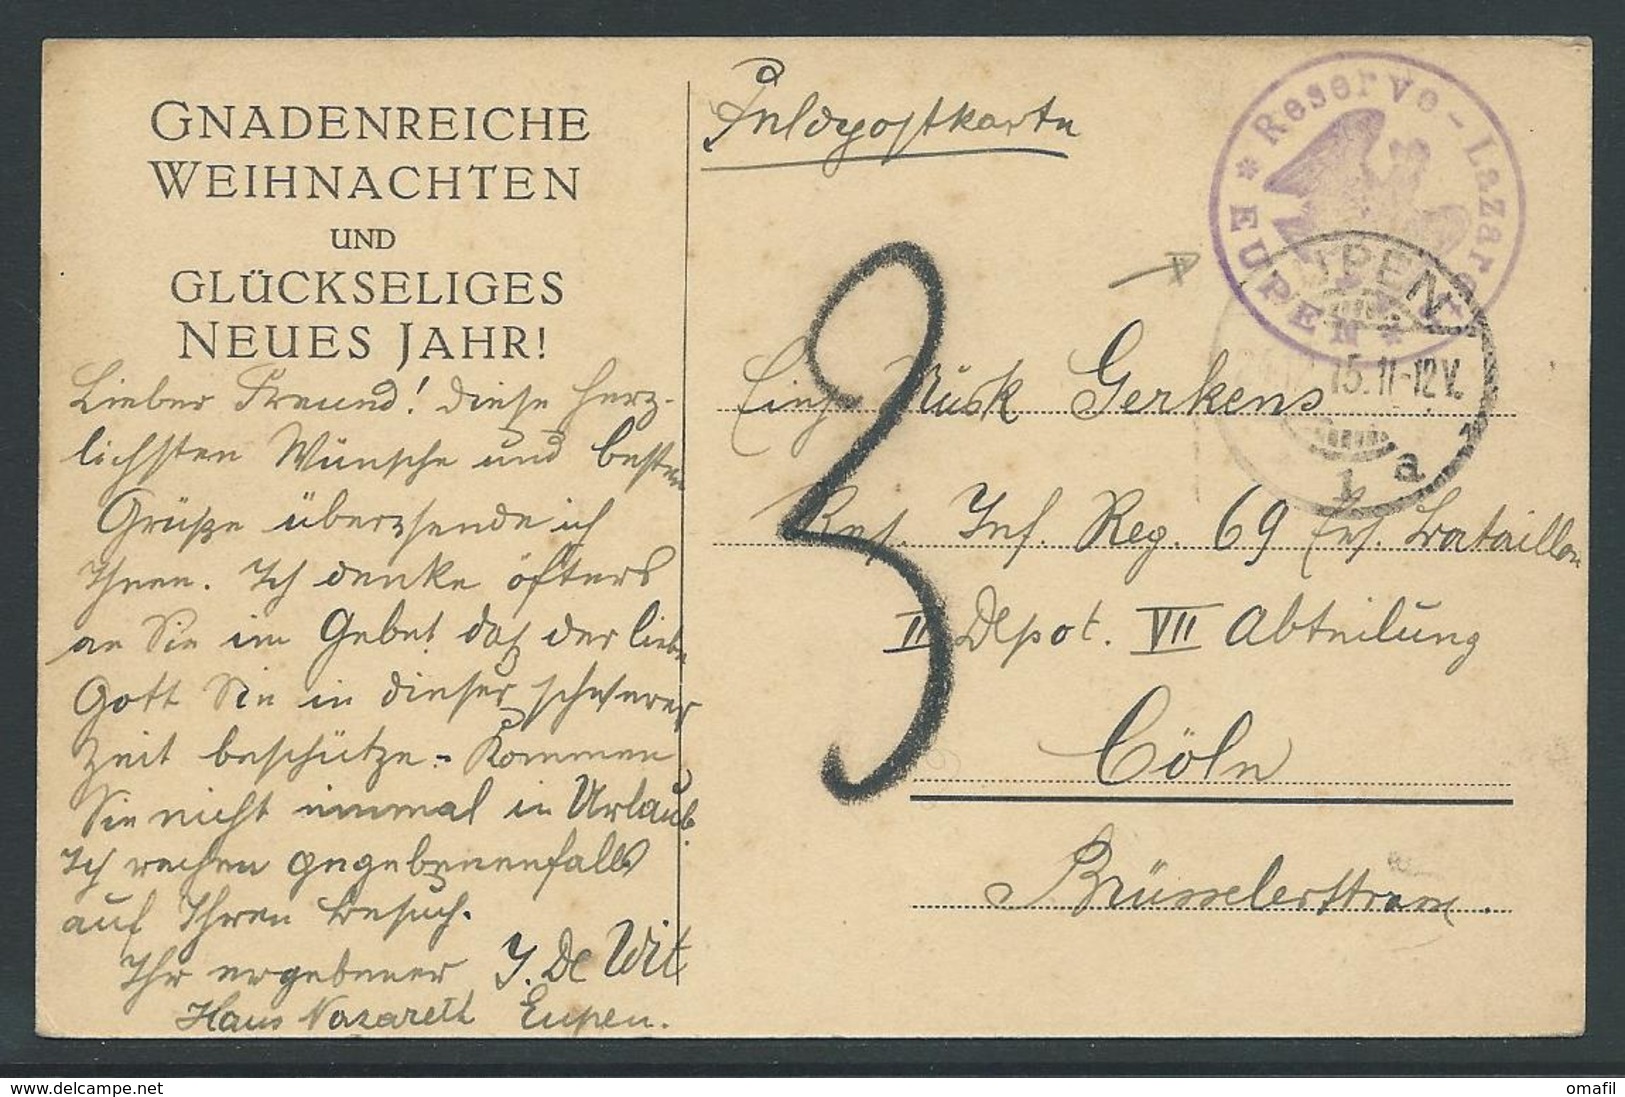 GNADENREICHE
WEIHNACHTEN
UND
GLÜCKSELIGES
NEUES JAHR!
Lieber Freund! diese herz-
lichsten Wünsche und besten
Grüße überssende ich
Ihnen. Ich denke öfters
an Sie im Gebet daß der liebe
Gott Sie in dieser schwerer
Zeit beschütze. - Kommen
Sie nicht einmal in Urlaub.
Ich rechne gegebenenfalls
auf Ihren Besuch.
Ihr ergebener J. De Wit
Haus Nazareth Eupen.
Feldpostkarte
* Reserve-Lazaret *
EUPEN
EUPEN
15.11-12V.
1 a
3
Einj. Musk Gerkens
Res. Inf. Reg. 69 Ers. Bataillon
II Depot. VII Abteilung
Cöln
Brüsselerstrasse.
www.delcampe.net
omafil